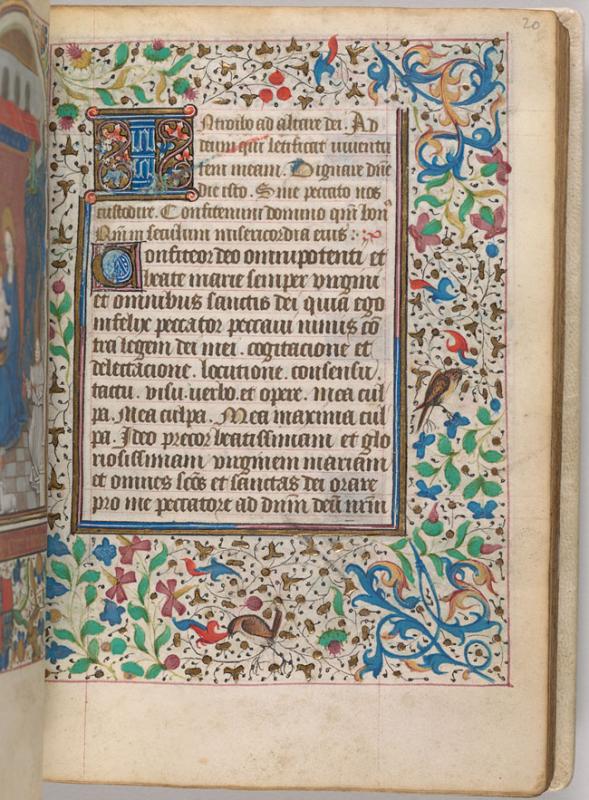 20
Introibo ad altare dei. Ad
deum qui letificat iuuentu
tem meam. Dignare dñe
die isto. Sine peccato nos
custodire. Confitemini domino qm̃ bon⁹
Qm̃ in seculum misericordia eius :
Confiteor deo omnipotenti et
beate marie semper virgini
et omnibus sanctis dei quia ego
infelix peccator peccaui nimis cõ
tra legem dei mei. cogitacione et
delectacione. locutione. consensu
tactu. visu. uerbo. et opere. mea cul
pa. Mea culpa. Mea maxima cul
pa. Ideo precor beatissimam et glo
riosissimam virginem mariam
et omnes scõs et sanctas dei orare
pro me peccatore ad dnm̃ deũ nrm̃